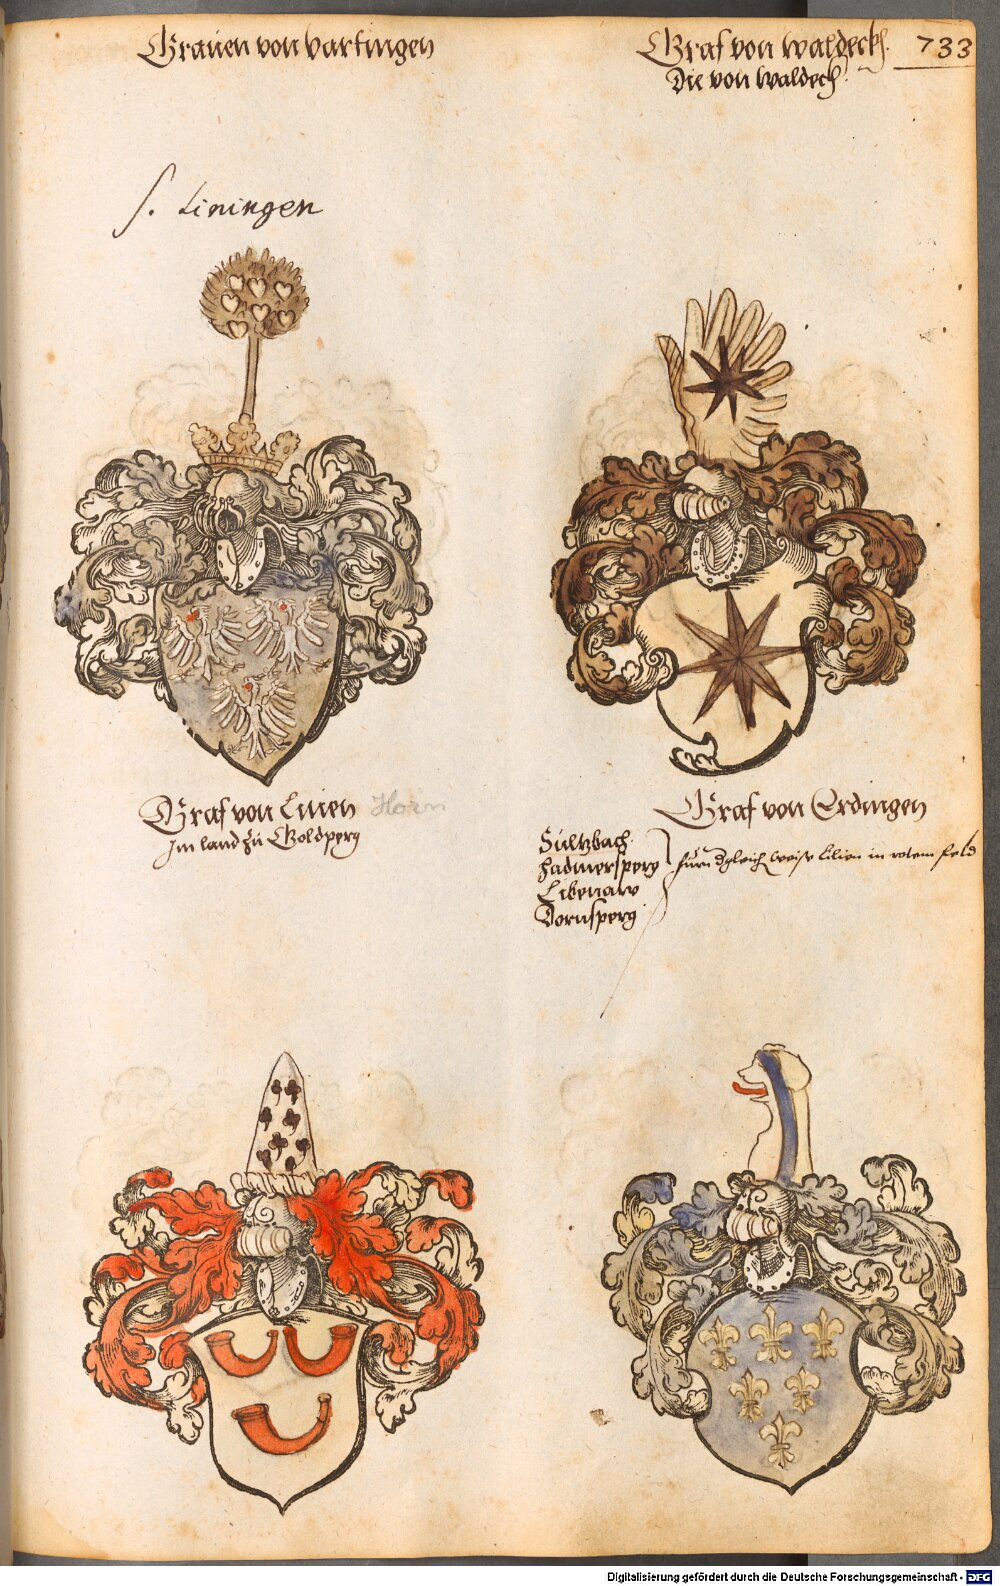 Grauen von vartingen
Graf von waldeckh.
733
Die von waldech.
s. Liningen
Graf von Linen Horn
Im land zu Goldperg
Graf von Erdingen
Sultzbach.
hadmersperg
furn dgleich weise Lilien in rotem feld
Libenaw
Dornsperg.
Digitalisierung gefördert durch die Deutsche Forschungsgemeinschaft - DFG